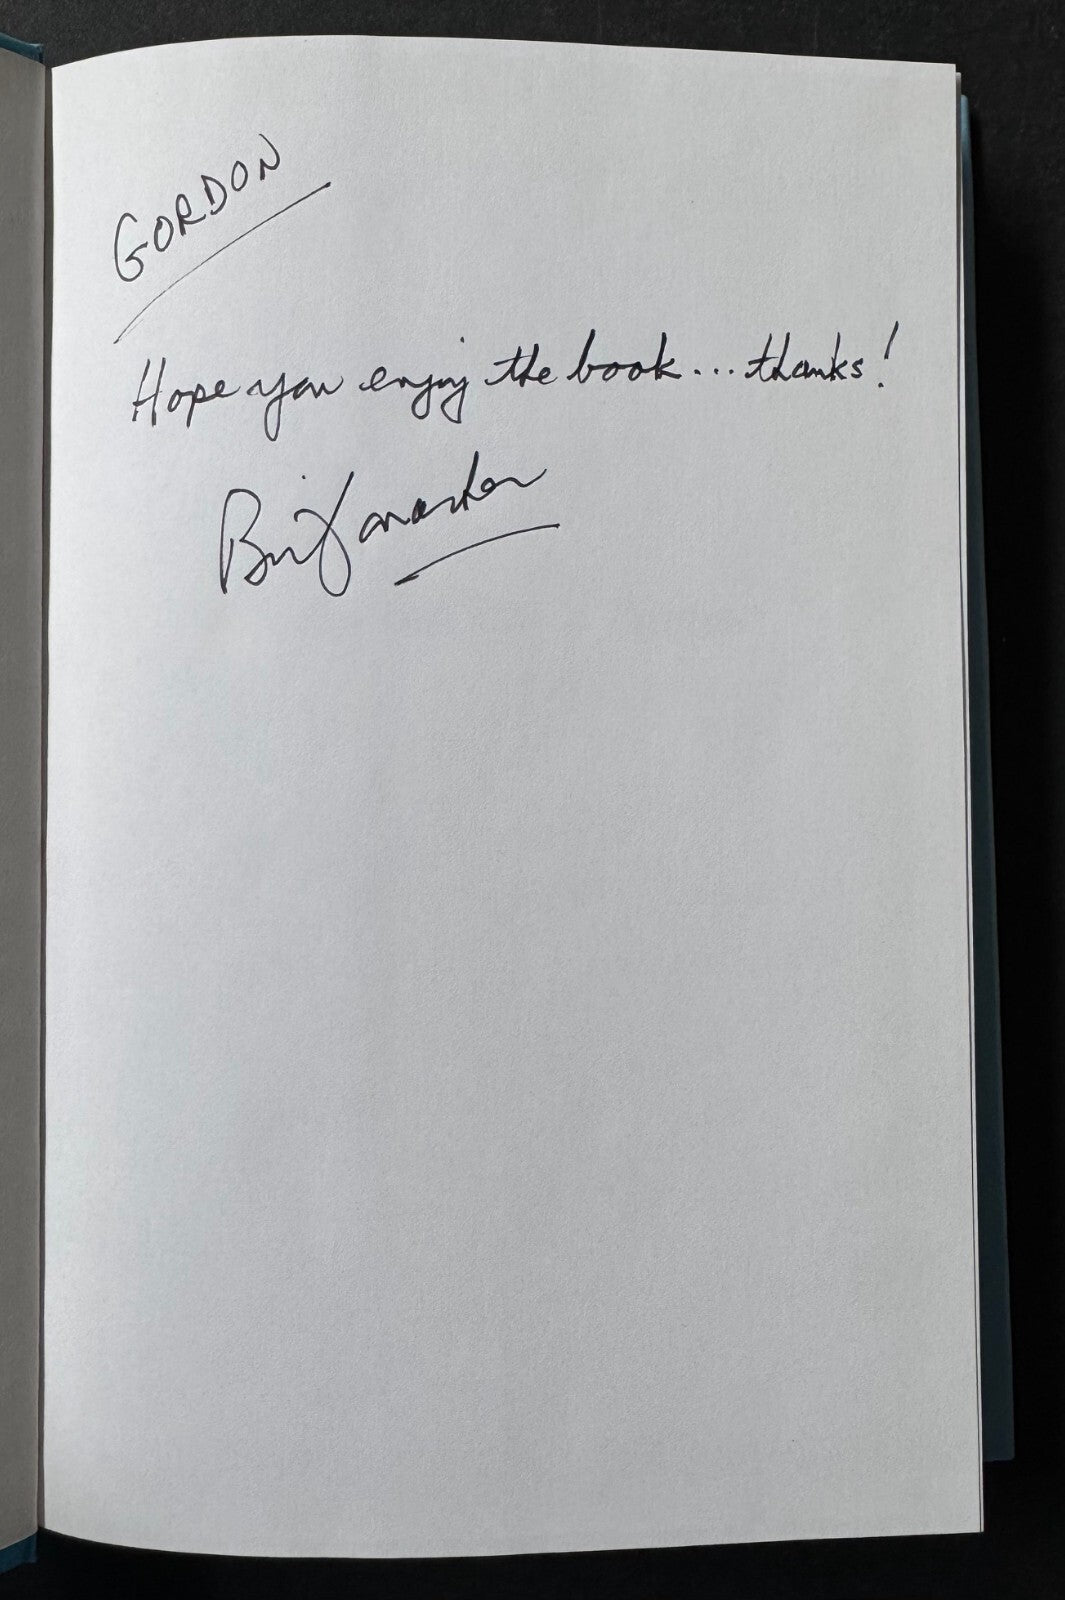 GORDON
Hope you enjoy the book... thanks!